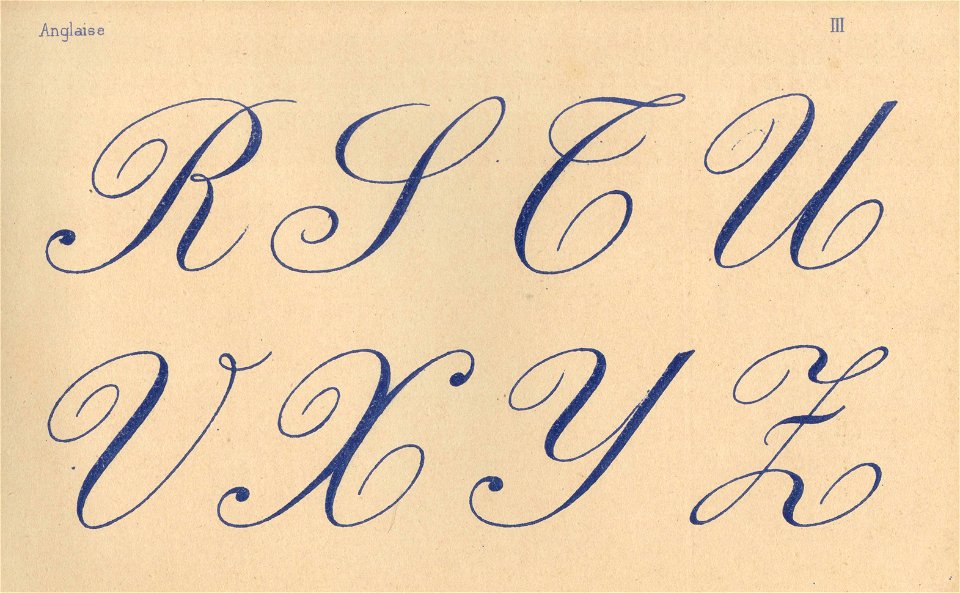 Anglaise III
R S T U
V X Y Z